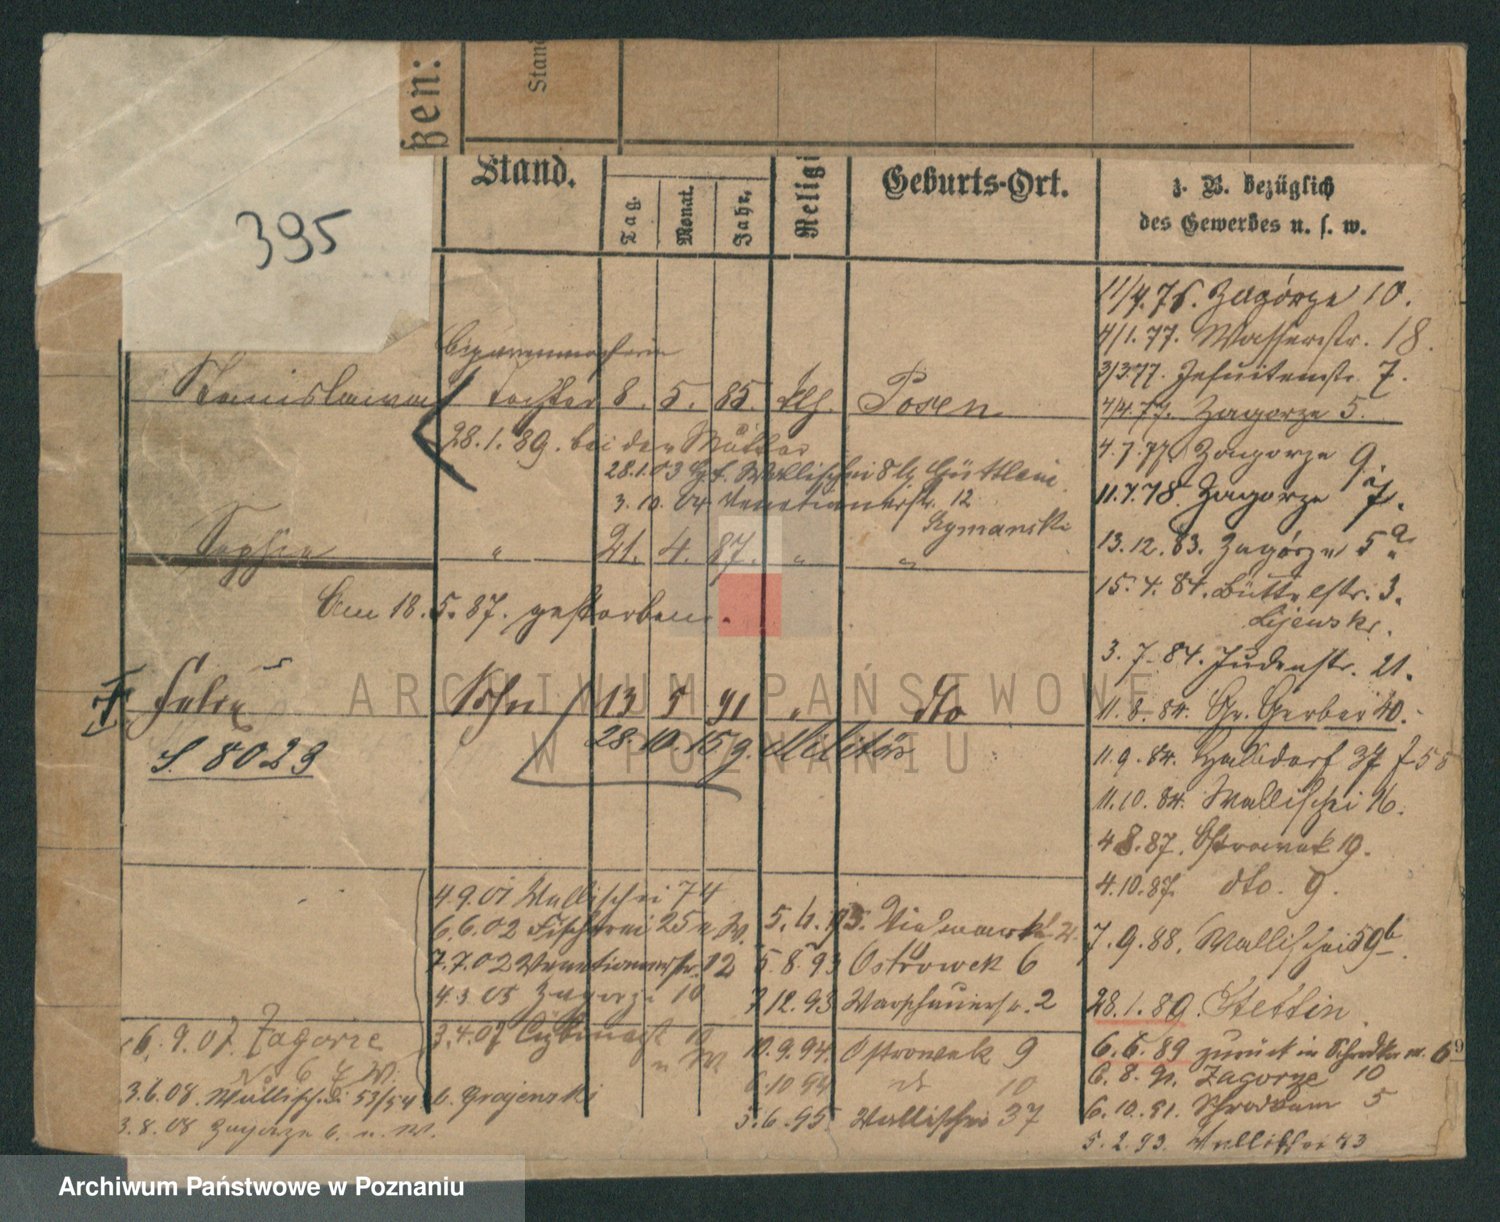 ßen:
Stand
395
Stand.
Tag.
Monat.
Jahr.
Religi
Geburts-Ort.
z. B. bezüglich
des Gewerbes u. s. w.
11/4.76. Zagórze 10.
4/1.77. Wasserstr. 18.
3/3.77. Jesuitenstr. 7.
4/4.77. Zagorze 5.
4.7.77. Zagorze 9
11.7.78. Zagorze 7.
13.12.83. Zagórze 5a.
15.4.84. Büttelstr. 3.
Lijewski.
3.7.84. Judenstr. 21.
11.8.84. Gr. Gerber 40.
11.9.84. Halbdorf 37
11.10.84. Wallischei 16.
4.8.87. Ostrowek 19.
4.10.87. dto. 9.
7.9.88. Wallischei 59b.
28.1.89. Stettin
6.6.89 zurück in Schrodka
6.8.91. Zagorze 10
6.10.91. Schrodkam 5
5.2.93. Wallischei 43
Cigarrenmacherin
Stanislawa Tochter 8. 5. 85. kth. Posen
28.1.89. bei der Mutter
28.1.03 Wallischei
3.10.04 Venetianerstr. 12
Szymanski
Sophie " 21. 4. 87. " "
Am 18.5.87. gestorben.
Felix Sohn 13 5 91 " dto
28.10.15 g. Militär
S. 8023
4.9.01 Wallischei 74
6.6.02 Fischerei 25
7.7.02 Venetianerstr. 12
4.3.05 Zagorze 10
3.4.07
b. Grajenski
5.6.93. Viehmarkt
5.8.93 Ostrowek 6
7.12.93 Warschauerstr. 2
10.9.94. Ostrowek 9
6.10 94 dt 10
5.6.95 Wallischei 37
6.9.07. Zagorze
No 6 b W.
3.6.08. Wallischei 53/54
3.8.08 Zagorze 6. u. W.
ARCHIWUM PAŃSTWOWE
W POZNANIU
Archiwum Państwowe w Poznaniu